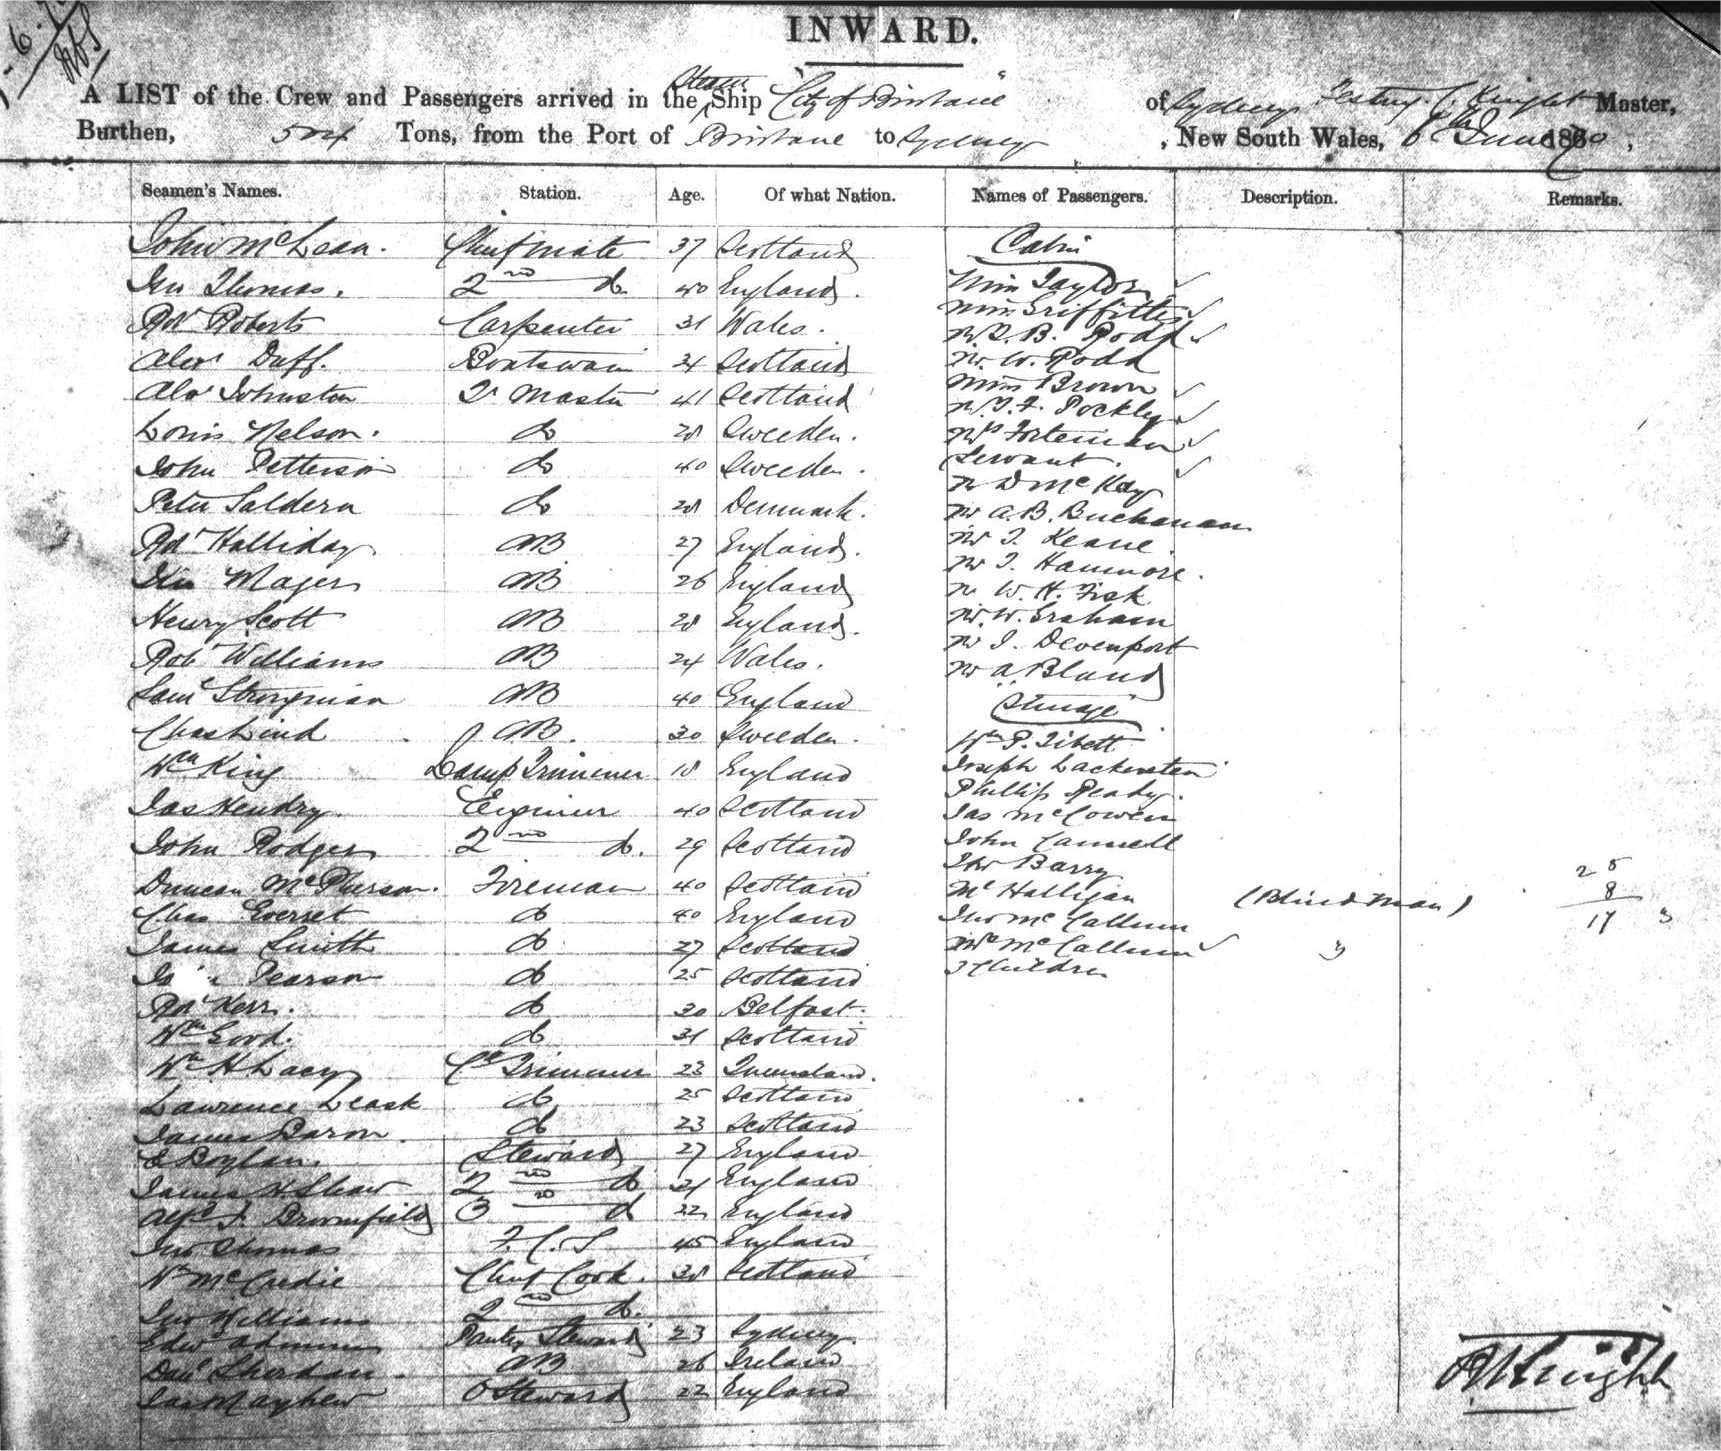 INWARD.
A LIST of the Crew and Passengers arrived in the Steam Ship "City of Brisbane" of Sydney C. Knight Master,
Burthen, 504 Tons, from the Port of Brisbane to Sydney, New South Wales, 6th June 1870,
Seamen's Names. Station. Age. Of what Nation. Names of Passengers. Description. Remarks.
John McLean. Chief mate 37 Scotland Cabin
Jno Thomas. 2nd do 40 England. Miss Taylor
Robt Roberts Carpenter 31 Wales. Miss Griffiths
Alexr Duff. Boatswain 34 Scotland Mr B. Rodd
Mr W. Rodd
Alexr Johnston Qr Master 41 Scotland Miss Brown
Mr Pockley
Louis Nelson. do 28 Sweeden. Mrs
Servant.
John Petterson do 40 Sweeden. Mr D McKay
Peter Saldern do 28 Denmark. Mr A. B. Buchanan
Robt Halliday AB 27 England. Mr J. Keane
Mr J. Hanmore.
Jno Mager AB 26 England Mr W. H. Fisk
Henry Scott AB 28 England. Mr W. Graham
Mr J. Devenport
Robt Williams AB 24 Wales. Mr A. Bland
Saml Strongman AB 40 England Steerage
Chas Lind AB. 30 Sweeden. Wm P. Tibett
Wm King Lamp Trimmer 18 England Joseph Lackersteen
Phillip Ready.
Jas Hendry. Engineer 40 Scotland Jas McCowen
John Rodger 2nd do. 29 Scotland John Cannell
Jno Barry 25
Duncan McPherson. Fireman 40 Scotland Mr Halligan (Blind Man) 8
Chas Everset do 40 England Jno McCallum 17 3
James Smith do 27 Scotland Mrs McCallum 3
Pearson do 25 Scotland 3 Children
Robt Kerr. do 30 Belfast.
Wm Good. do 31 Scotland
Wm H Lacy Cl Trimmer 23 Queensland.
Lawrence Leask do 25 Scotland
James Baron. do 23 Scotland
E Boylan. Steward 27 England
James H Shaw 2nd do 21 England
Alfd J. Broomfield 3 do 22 England
Jno Thomas F. C. S 45 England
Wm McCredie Chief Cook. 38 Scotland
Jno Williams 2nd do.
Edwd Pantry Steward 23 Sydney.
Danl Sheridan. AB 26 Ireland
Jas Mayhew O Steward 22 England
Knight